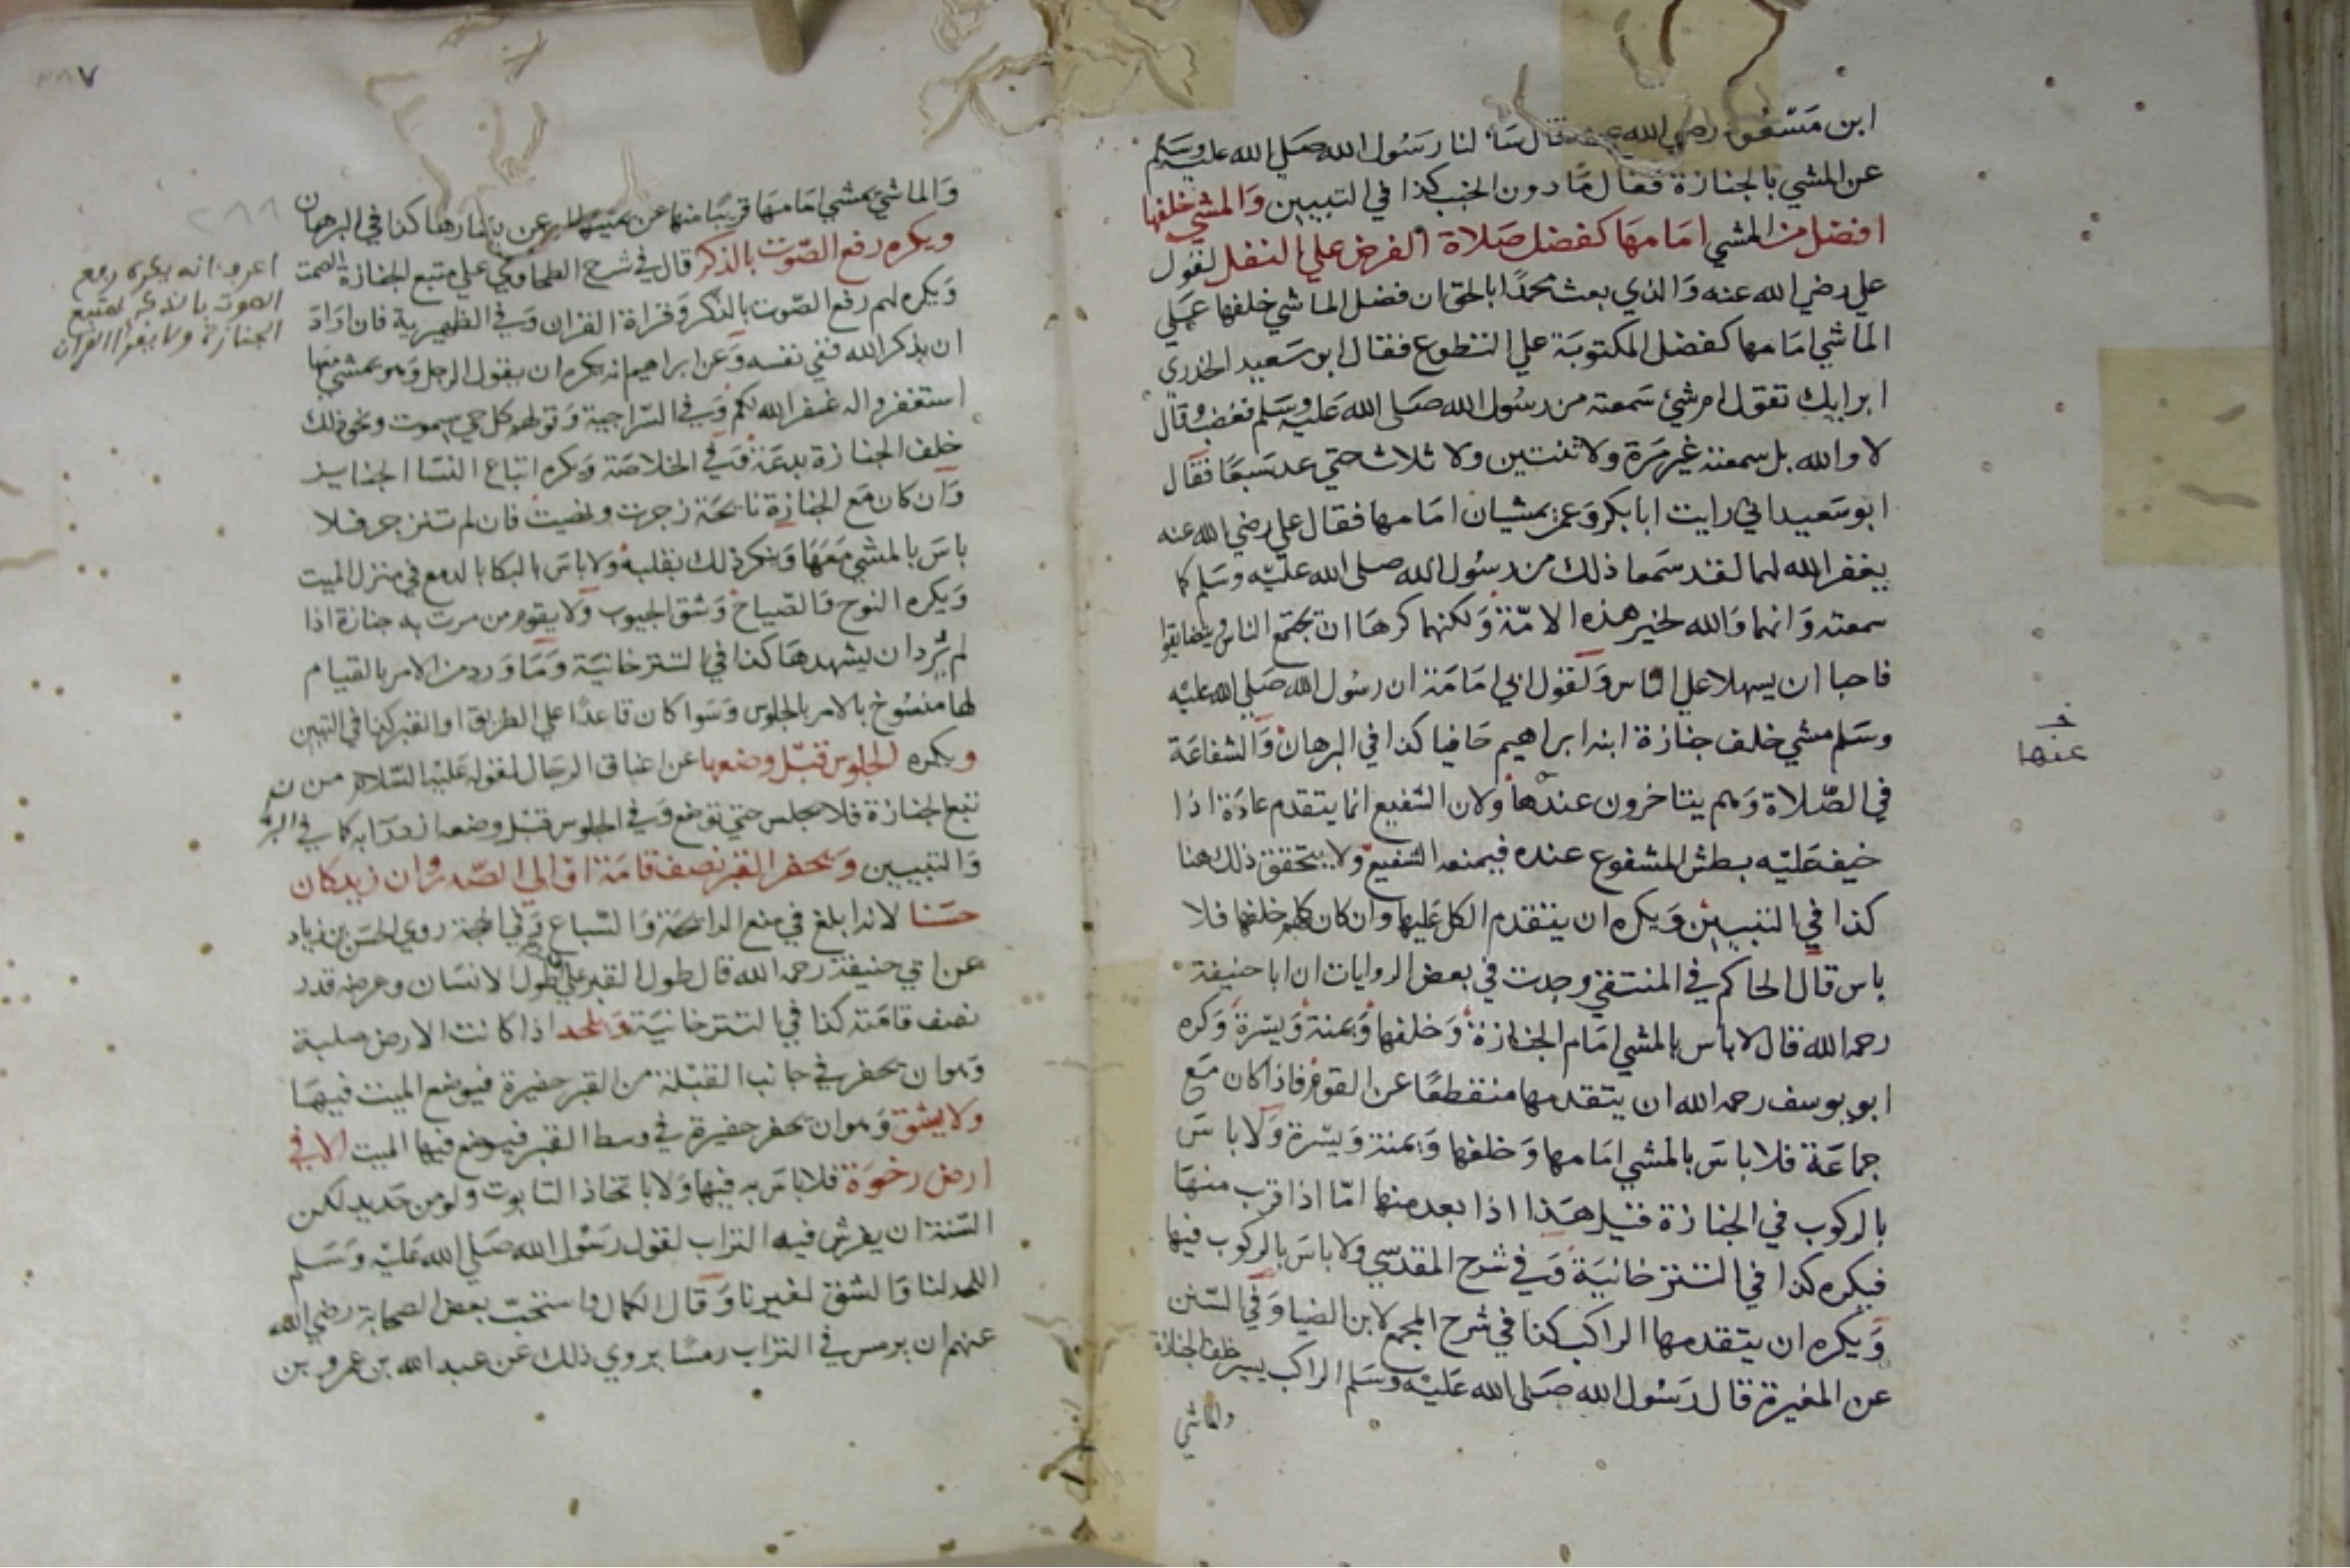 ابن مسعود رضي الله عنه قال سالنا رسول الله صلى الله عليه وسلم
عن المشي بالجنازة فقال ما دون الخبب كذا في التبيين والمشي خلفها
افضل من المشي امامها كفضل صلاة الفرض علي النفل لقول
علي رضي الله عنه والذي بعث محمدا بالحق ان فضل الماشي خلفها علي
الماشي امامها كفضل المكتوبة علي التطوع فقال ابو سعيد الخدري
ابرايك تقول ام شئ سمعته من رسول الله صلى الله عليه وسلم فغضب وقال
لا والله بل سمعته غير مرة ولا ثنتين ولا ثلاث حتي عد سبعا فقال
ابو سعيد اني رايت ابا بكر وعمر يمشيان امامها فقال علي رضي الله عنه
يغفر الله لهما لقد سمعا ذلك من رسول الله صلى الله عليه وسلم كما
سمعته وانهما والله لخير هذه الامة ولكنهما كرها ان يجتمع الناس ويتضايقوا
فاحبا ان يسهلا علي الناس ولقول ابي امامة ان رسول الله صلي الله عليه
وسلم مشي خلف جنازة ابنه ابراهيم حافيا كذا في البرهان والشفاعة
في الصلاة وهم يتاخرون عندها ولان الشفيع انما يتقدم عادة اذا
خيف عليه بطش المشفوع عنده فيمنعه الشفيع ولا يتحقق ذلك هنا
كذا في التبيين ويكره ان يتقدم الكل عليها وان كان كلهم خلفها فلا
باس قال الحاكم في المنتقي وجدت في بعض الروايات ان ابا حنيفة
رحمه الله قال لا باس بالمشي امام الجنازة وخلفها ويمنة ويسرة وكره
ابو يوسف رحمه الله ان يتقدمها منقطعا عن القوم فاذا كان مع
جماعة فلا باس بالمشي امامها وخلفها ويمنة ويسرة ولا باس
بالركوب في الجنازة قيل هذا اذا بعد منها اما اذا قرب منها
فيكره كذا في التترخانية وفي شرح المقدسي ولا باس بالركوب فيها
ويكره ان يتقدمها الراكب كذا في شرح المجمع لابن الضيا وفي السنن
عن المغيرة قال رسول الله صلى الله عليه وسلم الراكب يسير خلف الجنازة
والماشي
عنها
والماشي يمشي امامها قريبا منها عن يمينها او عن يسارها كذا في البرهان
ويكره رفع الصوت بالذكر قال في شرح الطحاوي علي متبع الجنازة الصمت
ويكره لهم رفع الصوت بالذكر وقراة القران وفي الظهيرية فان اراد
ان يذكر الله ففي نفسه وعن ابراهيم انه يكره ان يقول الرجل وهو يمشي معها
استغفروا له غفر الله لكم وفي السراجية وقولهم كل حي سيموت ونحو ذلك
خلف الجنازة بدعة وفي الخلاصة ويكره اتباع النسا الجنايز
وان كان مع الجنازة نايحة زجرت ونهيت فان لم تنزجر فلا
باس بالمشي معها وينكر ذلك بقلبه ولا باس بالبكا بالدمع في منزل الميت
ويكره النوح والصياح وشق الجيوب ولا يقوم من مرت به جنازة اذا
لم يرد ان يشهدها كذا في التترخانية وما ورد من الامر بالقيام
لها منسوخ بالامر بالجلوس وسوا كان قاعدا علي الطريق او القبر كذا في التبيين
ويكره الجلوس قبل وضعها عن اعناق الرجال لقوله عليه السلام من
تبع الجنازة فلا يجلس حتي توضع وفي الجلوس قبل وضعها ازدرآ به كما في
والتبيين ويحفر القبر نصف قامة او الي الصدر وان زيد كان
حسنا لانه ابلغ في منع الرائحة والسباع وفي الحجة روي الحسن بن زياد
عن ابي حنيفة رحمه الله قال طول القبر علي طول الانسان وعرضه قدر
نصف قامته كذا في التترخانية ويلحد اذا كانت الارض صلبة
وهو ان يحفر في جانب القبلة من القبر حفيرة فيوضع الميت فيها
ولا يشق وهو ان يحفر حفيرة في وسط القبر فيوضع فيها الميت الا في
ارض رخوة فلا باس به فيها ولا باتخاذ التابوت ولو من حديد لكن
السنة ان يفرش فيه التراب لقول رسول الله صلي الله عليه وسلم
اللحد لنا والشق لغيرنا وقال الكمال واستحب بعض الصحابة رضي الله
عنهم ان يرمس في التراب رمسا يروي ذلك عن عبد الله بن عمرو بن
اعرف انه يكره رفع
الصوت بالذكر لمتبع
الجنازة ولا يقرا القران
٢٨٨